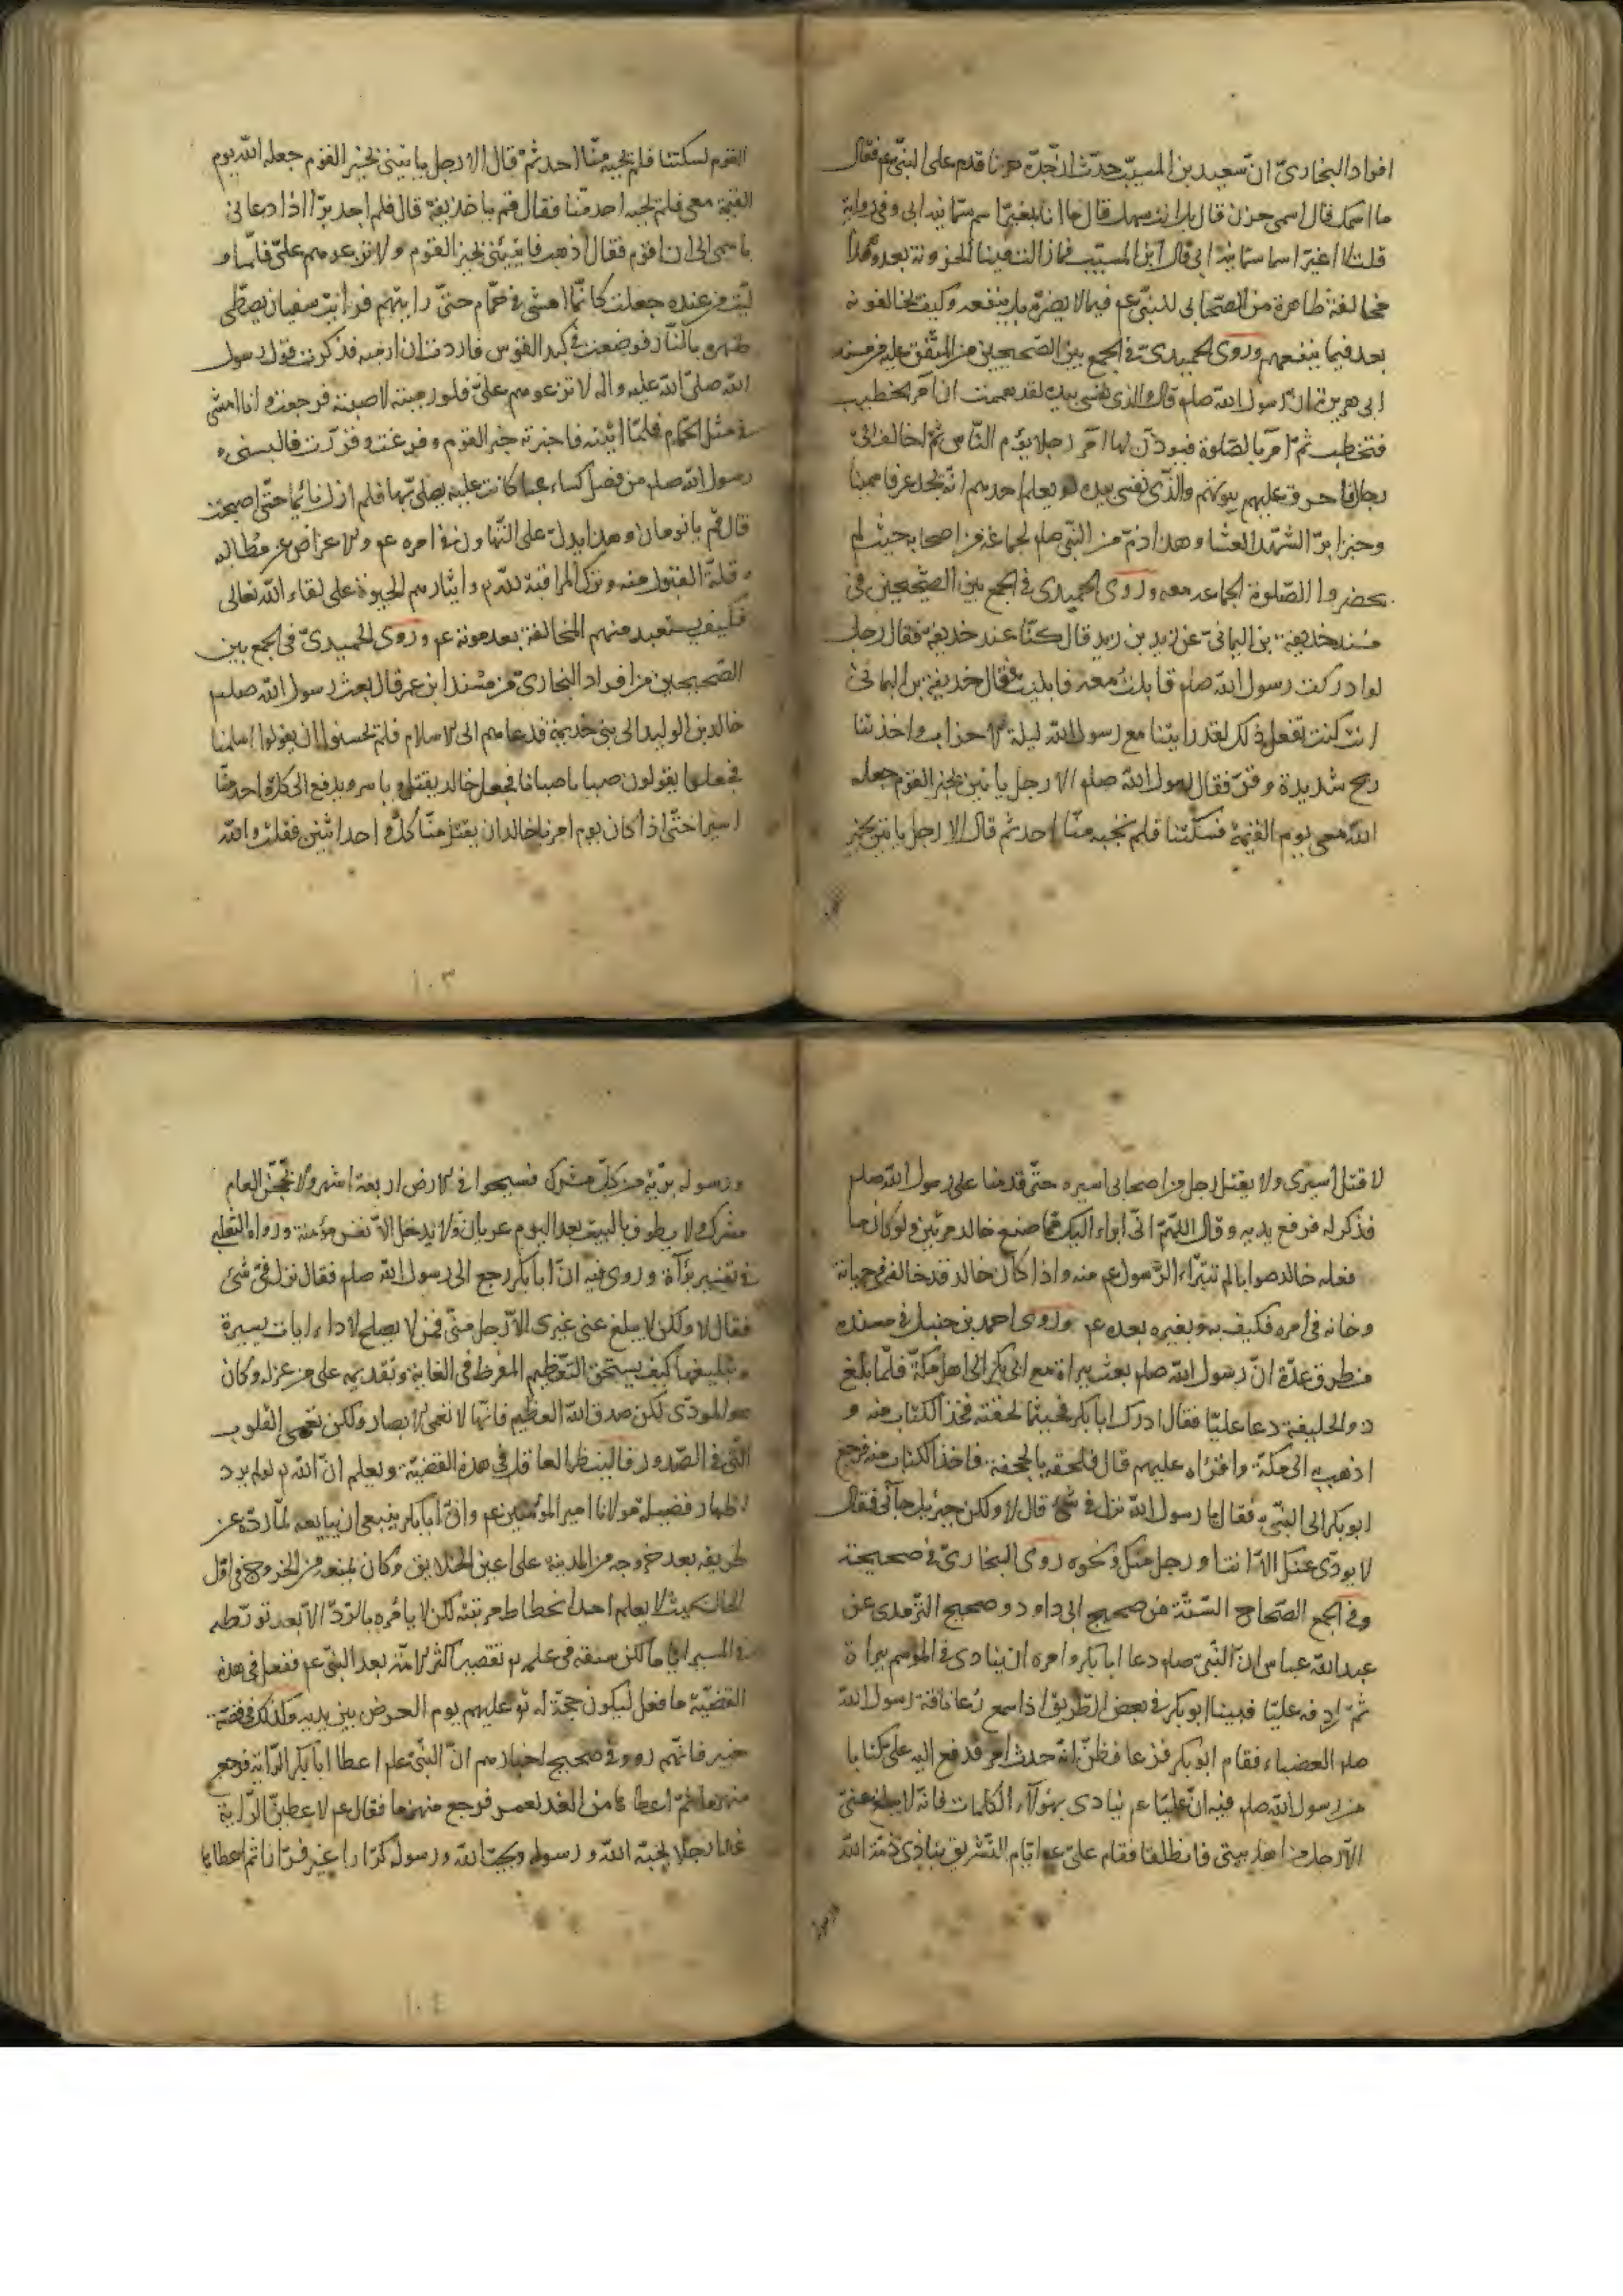 افراد البخاريّ انّ سعيد بن المسيّب حدّث انّ جدّه حزنا قدم على النبيّ عم فقال
ما اسمك قال اسمي حزن قال بل انت سهل قال ما انا بمغيّر اسم سمّانيه ابي وفي رواية
قلت لا اغيّر اسما سمّانيه ابي قال ابن المسيّب فما زالت فينا الحزونة بعد وهذا
مخالفة ظاهرة من الصّحابي للنبيّ عم فيما لا يضرّه بل ينفعه وكيف لا يخالفونه
بعد فيما ينفعهم وروى الحميديّ في الجمع بين الصّحيحين من المتّفق عليه من مسند
ابي هريرة انّ رسول الله صلم قال والذي نفسي بيده لقد هممت ان آمر بحطب
فتحطب ثمّ آمر بالصّلوة فيوذّن لها آمر رجلا يؤم النّاس ثمّ اخالف الى
رجال فاحرق عليهم بيوتهم والّذي نفسي بيده لو يعلم احدهم انّه يجد عرقا سمينا
وخبزا برّا لشهد العشا وهذا ذمّ من النّبيّ صلم لجماعة من اصحابه حيث لم
يحضروا الصّلوة الجماعة معه وروى الحميدي في الجمع بين الصّحيحين في
مسند حذيفة بن اليماني عن زيد بن زيد قال كنّا عند حذيفة فقال رجل
لو ادركت رسول الله صلم قاتلت معه فابليت فقال حذيفة بن اليماني
انت كنت تفعل ذلك لقد رايتنا مع رسول الله ليلة الاحزاب واخذتنا
ريح شديدة وقرّ فقال رسول الله صلم الا رجل ياتيني بخبر القوم جعله
الله معي يوم القيمة فسكتنا فلم يجبه منّا احد ثم قال الا رجل ياتيني بخبر
القوم فسكتنا فلم يجبه منّا احد ثمّ قال الا رجل ياتيني بخبر القوم جعله الله يوم
القيمة معي فلم يجبه احد منّا فقال قم يا حذيفة قال فلم اجد برّا اذا دعاني
باسمي الى ان اقوم فقال اذهب فاتيني بخبر القوم ولا تذعرهم عليّ فلمّا و
لّيت من عنده جعلت كانّما امشي في حمّام حتّى رايتهم فرايت سفيان يصطّى
ظهره بالنّار فوضعت في كبد القوس فاردت ان ارميه فذكرت قول رسول
الله صلّى الله عليه واله لا تذعرهم عليّ فلو رميته لاصبته فرجعت وانا امشي
في مثل الحمّام فلمّا اتيته فاخبرته خبر القوم وفرغت وقررت فالبسني
رسول الله صلم من فضل كساء عبا كانت عليه يصلي بها فلم ازل نائما حتّى اصبحت
قال قم يا نومان وهذا يدلّ على التّهاون في امره عم والاعراض عن مطالبه
وقلّة القبول منه وترك المراقبة للّه وايثارهم الحيوة على لقاء الله تعالى
فكيف يستبعد منهم المخالفة بعد موته عم وروى الحميديّ في الجمع بين
الصّحيحين من افراد البخاريّ من مسند ابن عمر قال بعث رسول الله صلم
خالد بن الوليد الى بني خذيمة فدعاهم الى الاسلام فلم يحسنوا ان يقولوا اسلمنا
فجعلوا يقولون صبانا صبانا فجعل خالد يقتل وياسر ويدفع الى كلّ واحد منّا
اسيرا حتّى اذا كان يوم امرنا خالد ان يقتل منّا كلّ واحد اسيره فقلت والله
لا قتل اسيري ولا يقتل رجل من اصحابي اسيره حتّى قدمنا على رسول الله صلم
فذكر له فرفع يديه وقال اللّهمّ انّي ابراء اليك ممّا صنع خالد مرّتين ولو كان ما
فعله خالد صوابا لم تتبرّاء الرّسول عم منه واذا كان خالد قد خالفه في حياته
وخانه في امره فكيف به وبغيره بعده عم وروى احمد بن حنبل في مسنده
من طرق عدّة انّ رسول الله صلم بعث ببراة مع ابي بكر الى اهل مكّة فلمّا بلغ
ذو الحليفة دعا عليّا فقال ادرك ابا بكر فحيثما لحقته فخذ الكتاب منه و
اذهب به الى مكّة واقراه عليهم قال فلحقه بالجحفة فاخذ الكتاب منه فرجع
ابو بكر الى النّبيّ فقال يا رسول الله نزل فيّ شيء قال لا ولكن جبرئيل جآني فقال
لا يودّي عنك الّا انت او رجل منك ونحوه روى البخاريّ في صحيحه
وفي الجمع الصّحاح السّتّة من صحيح ابي داود وصحيح التّرمذي عن
عبد الله عباس انّ النّبيّ صلم دعا ابا بكر وامره ان ينادي في الموسم ببراة
ثمّ اردفه عليّا فبينا ابو بكر في بعض الطّريق اذا سمع رُغا ناقة رسول الله
صلم العضباء فقام ابو بكر فزعا فظنّ انّه حدث امر فدفع اليه عليّ كتابا
من رسول الله صلم فيه انّ عليّا عم ينادي بهؤلاء الكلمات فانّه لا يبلغ عنّي
الّا رجل من اهل بيتي فانطلقا فقام عليّ عم ايّام التّشريق ينادي ذمّة الله
ورسوله بريّة من كلّ مشرك فسيحوا في الارض اربعة اشهر ولا يحجّنّ العام
مشرك ولا يطوف بالبيت بعد اليوم عريان ولا يدخل الّا نفس مؤمنة ورواه الثعلبي
في تفسير برآة وروى فيه انّ ابا بكر رجع الى رسول الله صلم فقال نزل فيّ شيء
فقال لا ولكن لا يبلغ عنّي غيري الّا رجل منّي فمن لا يصلح لاداء ايات يسيرة
وتبليغها كيف يستحق التّعظيم المفرط في الغاية وتقديمه على من عزله وكان
هو المودّي لكن صدق الله العظيم فانّها لا تعمى الابصار ولكن تعمى القلوب
الّتي في الصّدور فالينظر العاقل في هذه القضيّة ويعلم انّ الله لو لم يرد
اظهار فضيلة مولانا امير المؤمنين عم وانّ ابا بكر ينبعي ان يبايعه لمّا ردّه عن
طريقه بعد خروجه من المدينة على اعين الخلايق وكان يمنعه من الخروج في اوّل
الحال بحيث لا يعلم احد انحطاط مرتبته لكن لا يامره بالرّدّ الّا بعد تورّطه
في المسير ايّاما لكن سبقه في علمه تقصير اكثر الامّة بعد النّبيّ عم ففعل في هذه
القضيّة ما فعل ليكون حجّة له تو عليهم يوم العرض بين يديه وكذلك في قصّة
خيبر فانّهم رووا في صحيح اخبارهم انّ النّبيّ علم اعطا ابا بكر الرّاية فرجع
منهزما ثمّ اعطاها من الغد لعمر فرجع منهزما فقال عم لاعطينّ الرّاية
غدا رجلا يحبّه الله ورسوله ويحبّ الله ورسوله كرّارا غير فرّار ثم اعطاها